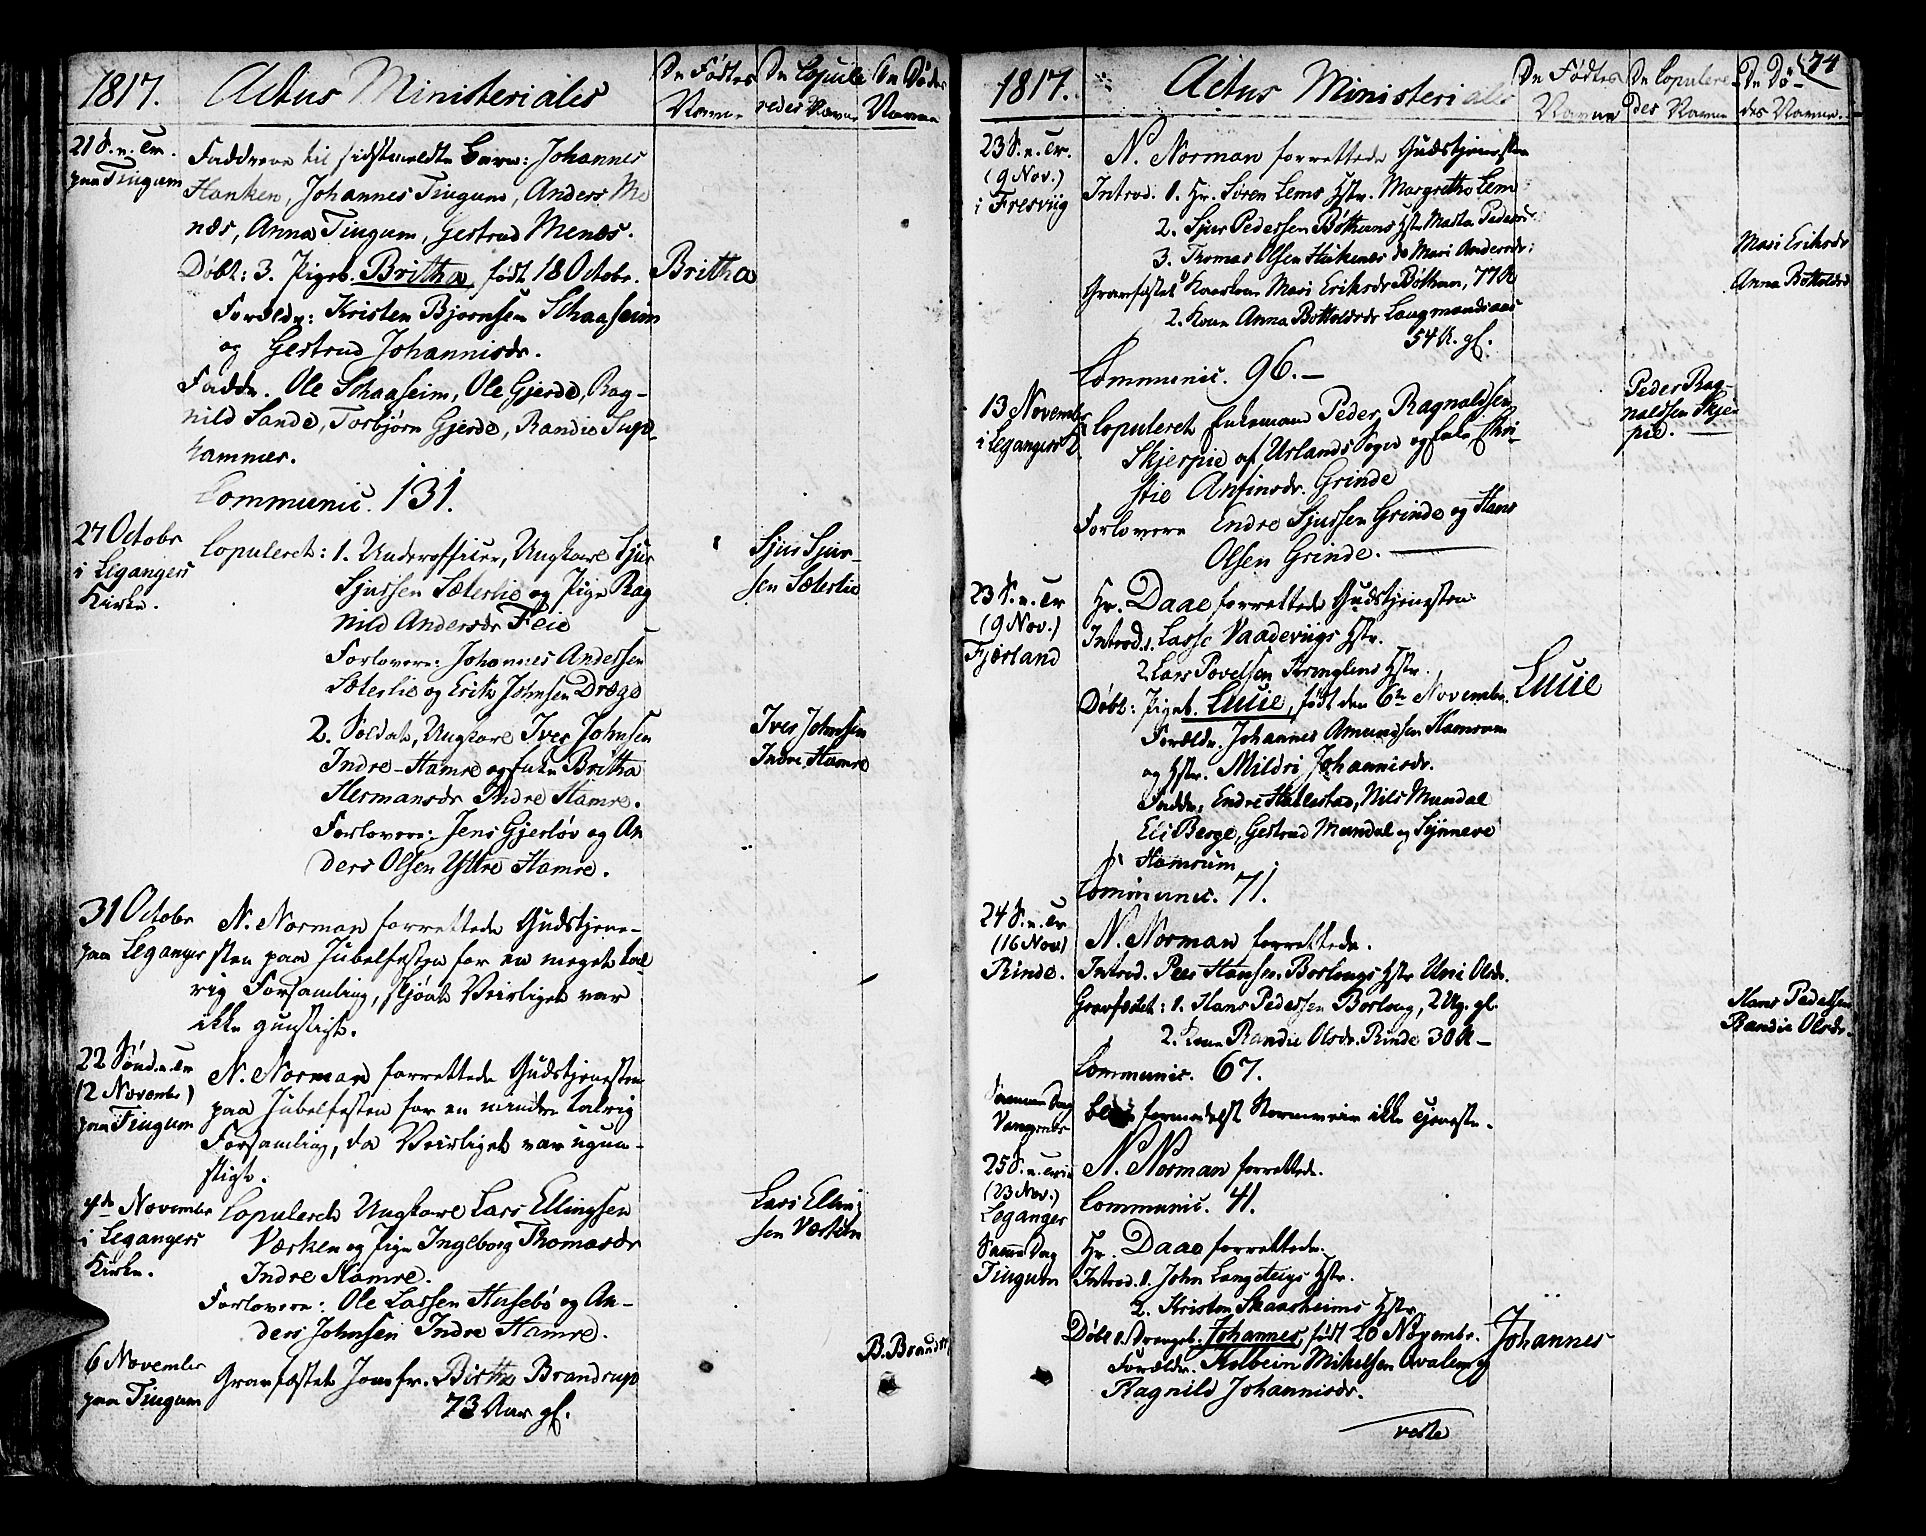 1817. Actus Ministeriales
De Fødtes Navne
De Copuleredes Navne
De Dødes Navne
21 S. n. Tr.
paa Tingum
Faddrene til sidstmeldte Barn: Johannes
Hanken, Johannes Tingum, Anders Me
næs, Anna Tingum, Gertrud Menæs.
Døbt: 3. Pigeb. Britha, født 18 Octobr. Britha
Forældr: Kristen Bjørnsen Skaaseim
og Gertrud Johannisdr.
Faddr. Ole Skaaseim, Ole Gjerde, Rag-
nild Sande, Torbjørn Gjerde, Randie Sup-
hammer.
Communic. 131.
27 Octobr
i Legangers
Kirke.
Copuleret: 1. Underofficer, Ungkarl Sjur
Sjursen Sæterlie og Pige Rag
nild Andersdr Feie
Sjur Sjur-
sen Sæterlie
Forlovere: Johannes Andersen
Sæterlie og Erik Johnsen Dræge
2. Soldat, Ungkarl Iver Johnsen
Indre-Hamre og Enke Britha
Hermansdr Indre Hamre.
Iver Johnsen
Indre Hamre
Forlovere: Jens Gjerløv og An
ders Olsen Yttre Hamre.
31 Octobr
paa Leganger
N. Norman forrettede Gudstjene-
sten paa Jubelfesten for en meget tal
rig Forsamling, skjønt Veirliget var
ikke gunstigt.
22 Sønd. n. Tr
(2 Novembr)
paa Tingum
N. Norman forrettede Gudstjenesten
paa Jubelfesten for en mindre talrig
Forsamling, da Veirliget var ugun-
stigt.
4de November
i Legangers
Kirke.
Copuleret Ungkarl Lars Ellingsen
Værken og Pige Ingeborg Thomasdr
Indre Hamre.
Lars Elling
sen Værken
Forlovere: Ole Larsen Husebø og An-
ders Johnsen Indre Hamre.
6 November
paa Tingum
Gravfæstet Jomfr. Birthe Brandrup
73 Aar gl.
B. Brandr
1817. Actus Ministeriales
De Fødtes Navne
De Copuleredes Navne
De Dødes Navne.
74
23 S. n. Tr.
(9 Nov.)
i Fresviig
N. Norman forrettede Gudstjenesten
Introd. 1. Hr. Søren Lems Hstr. Margrethe Lem
2. Sjur Pedersen Bøthuns Hstr Marta Pedersd
3. Thomas Olsen do Mari Andersdr:
Gravfæstet 1 Mari Eriksdr Bøthun, 77 A
2. Kone Anna Botholdsdr Langmandsaas
54 A. gl.
Mari Eriksdr
Anna Botholdsd
Communic. 96.—
13 November
i Legangers K.
Copuleret Enkemand Peder Ragnaldsen
Skjerpie af Urlands Sogn og Enke Chri-
stie Anfinsdr. Grinde
Peder Rag-
naldsen Skjer
pie.
Forlovere Endre Sjursen Grinde og Hans
Olsen Grinde.
23 S. n. Tr
(9 Nov.)
Fjærland
Hr. Daae forrettede Gudstjenesten
Introd. 1. Lasse Vaadeviigs Hstr.
2. Lars Povelsen Hstr.
Døbt: Pigeb. Lucie, født den 6te Novembr. Lucie
Forældr. Johannes Amundsen Hamrum
og Hstr. Mildri Johannisdr.
Faddr, Endre Hallestad, Nils Mundal
Eli Berge, Gertrud Mundal og Synneve
Hamrum
Communic. 71.
24 S. n. Tr
(16 Nov.)
Rinde.
N. Norman forrettede.
Introd. Peer Hansen Borlaugs Hstr Uni Olsdr.
Gravfæstet: 1. Hans Pedersen Borlaug, 2 Ug. gl.
2. Kone Randie Olsdr. Rinde 30 A—
Hans Pedersen
Randie Olsdr.
Communic. 67.
Samme Dag
Vangsnæs
blev formedelst Stormveir ikke tjeneste.
25 S. n. Trin
(23 Nov.)
Leganger
N. Norman forrettede.
Communic. 41.
Samme Dag
Tingum
Hr. Daae forrettede.
Introd. 1. John Langeteigs Hstr.
2. Kristen Skaasheims Hstr.
Døbt 1. Drengeb. Johannes, født 20 Novembr. Johannes
Forældr. Kolbein Mikelsen Qvalen og
Ragnild Johannisdr.
verte